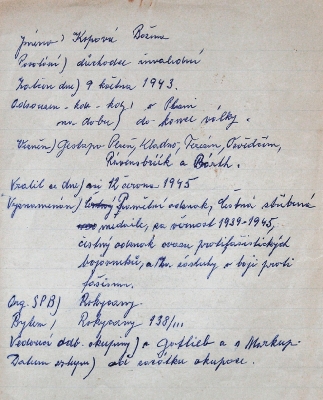 Jméno) Kopová Božena
Povolání) důchodce invalidní
Zatčen dne) 9 května 1943.
Odsouzen - kde - kdy) v Plzni
na dobu) do konce války.
Vězněn) Gestapo Plzeň, Kladno, Terezín,
Ravensbrück a Barth.
Vrátil se dne) asi 12 června 1945
Vyznamenání) Pamětní odznak, čestná stříbrná
medaile, za věrnost 1939-1945,
čestný odznak svazu protifašistických
bojovníků, a za zásluhy v boji proti
fašismu.
Org. SPB) Rokycany
Bytem) Rokycany 138/III
Vedoucí odb. skupiny) Gottlieb a
Datum vstupu) od začátku okupace.